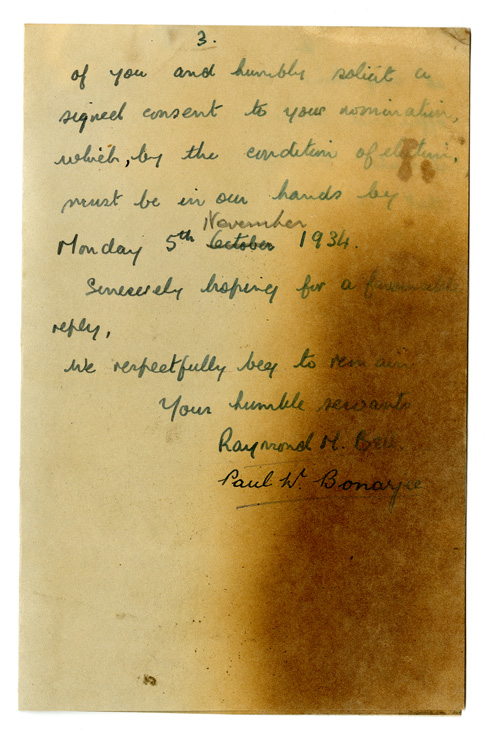 3.
of you and humbly solicit a
signed consent to your nomination,
which, by the condition of election,
must be in our hands by
November
Monday 5th October 1934.
Sincerely hoping for a favourable
reply,
We respectfully beg to remain
Your humble servants
Raymond M.
Paul W. Bonarjee